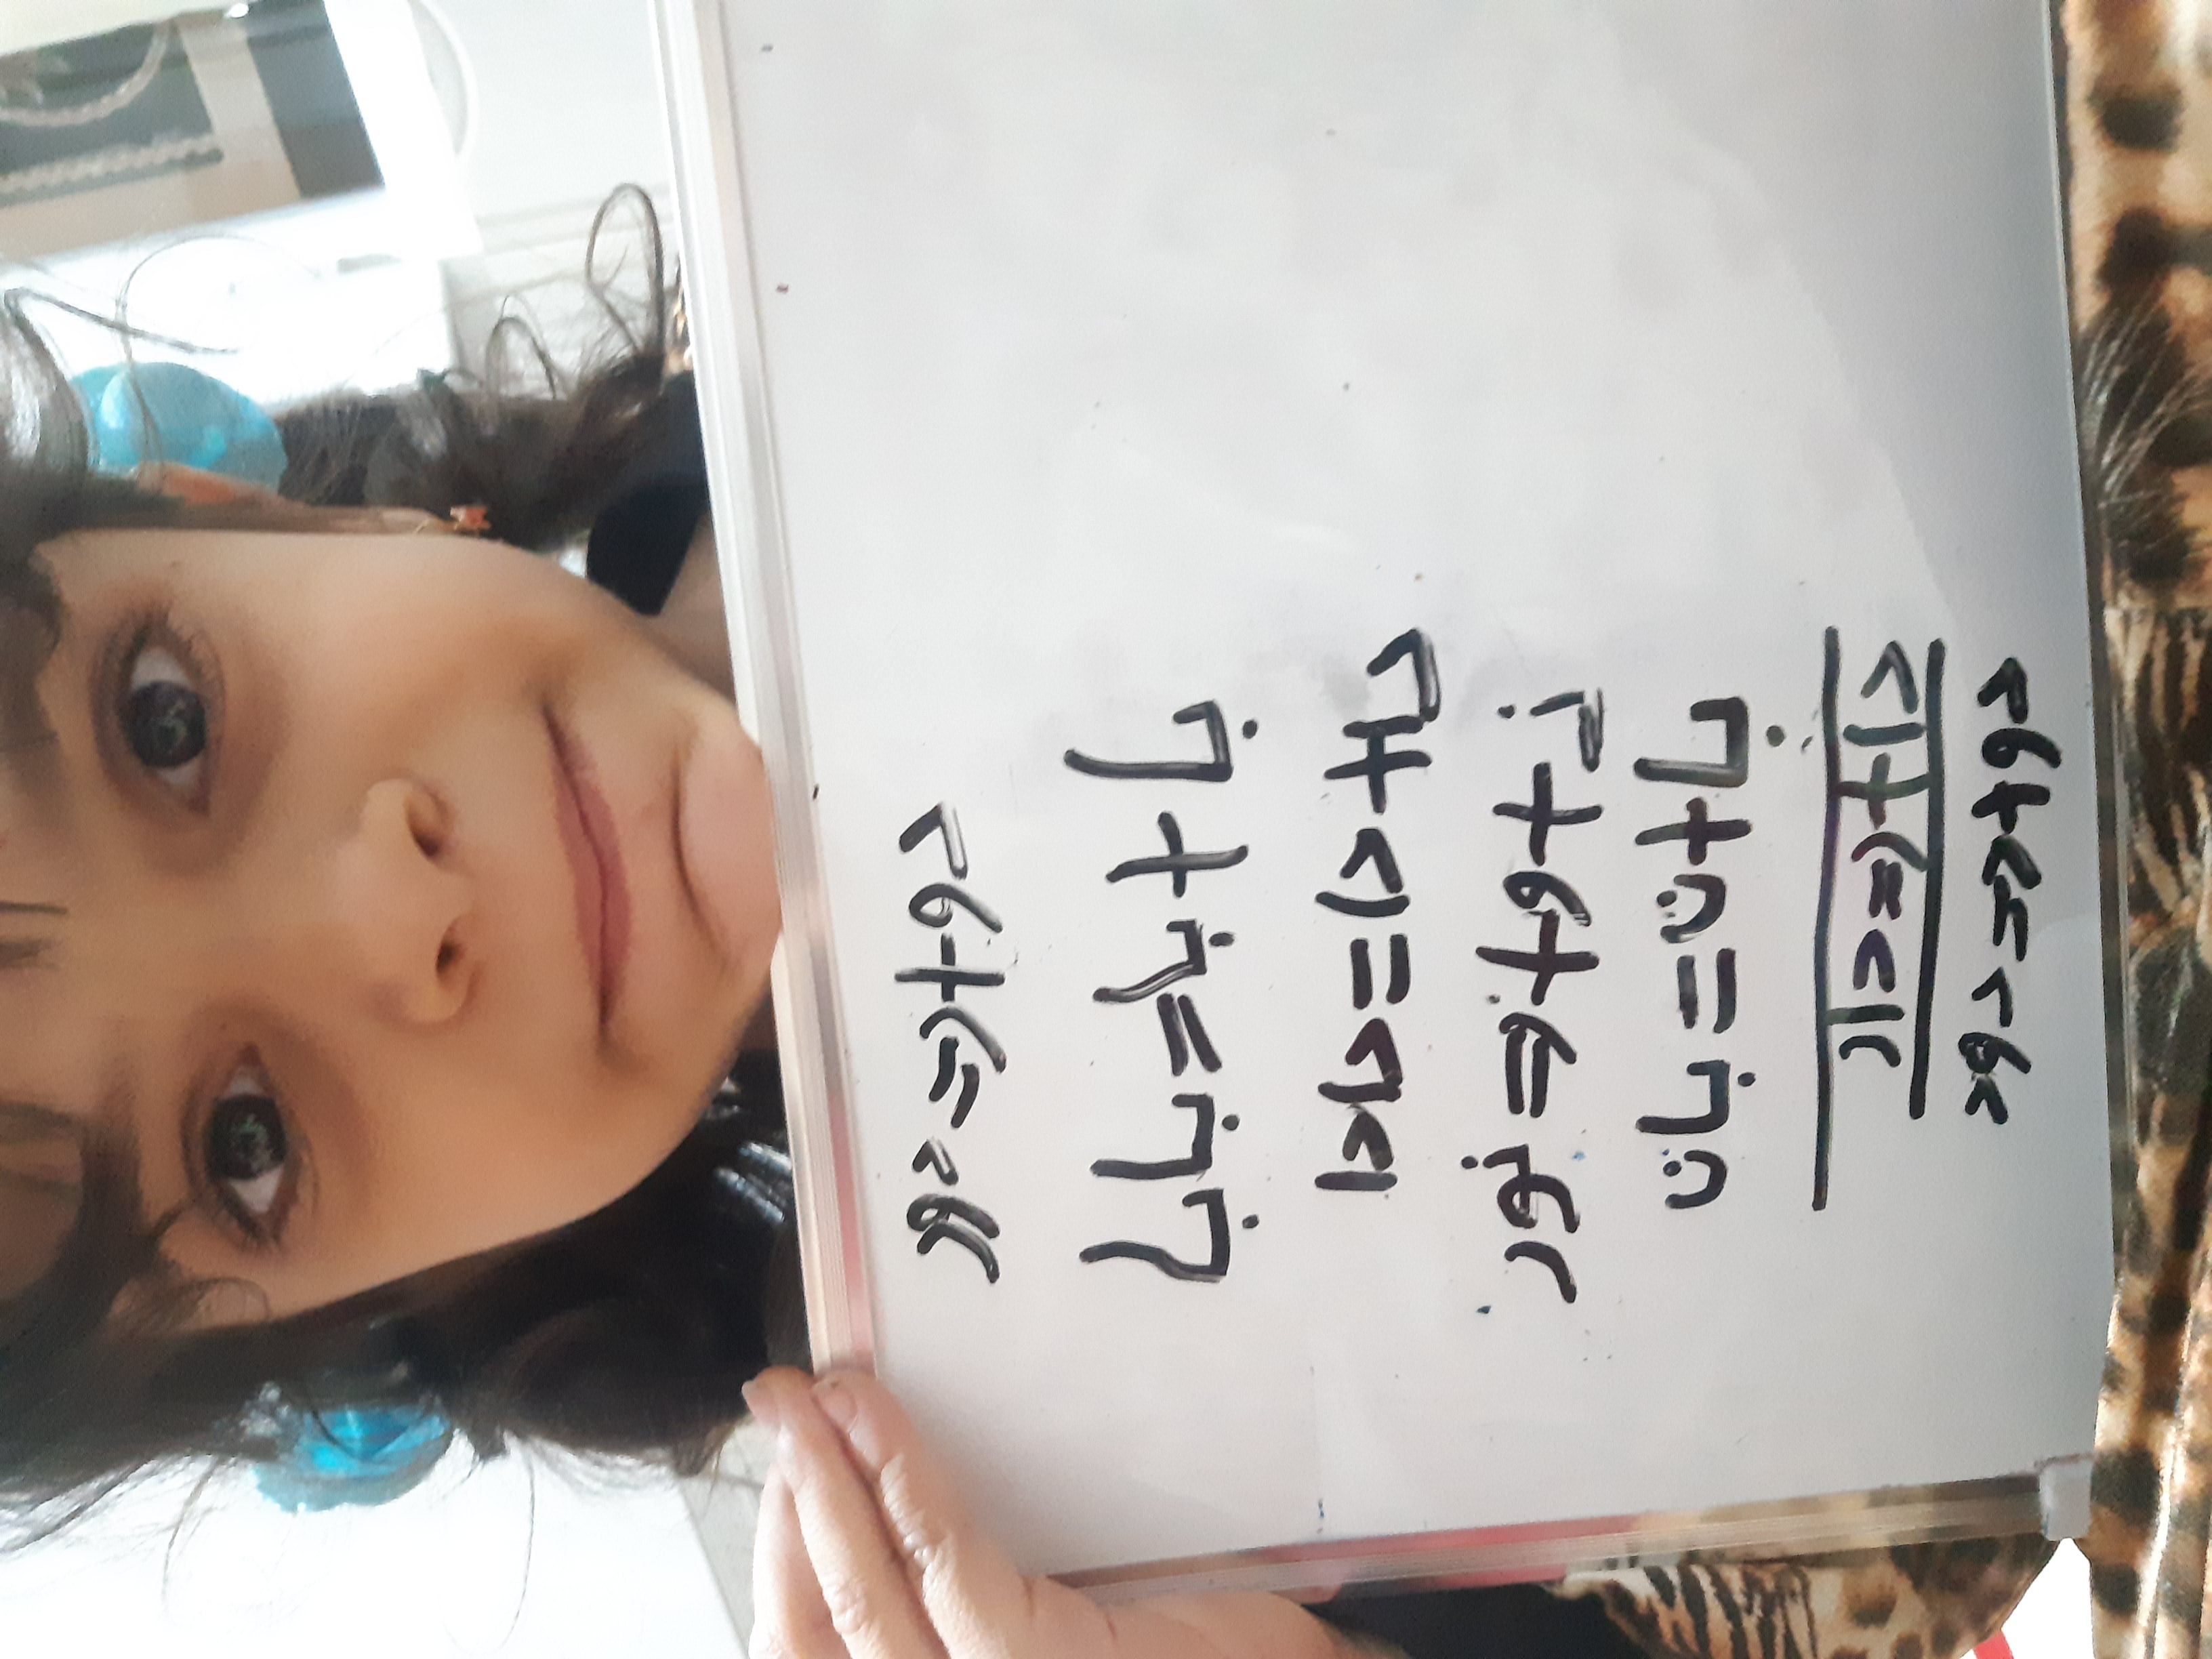 دو+ر=دور
با+با=بابا
دا+دا=دادا
نـ+و+ر=نور
با+ن=بان
دا+ر=دار
دو+د=دود